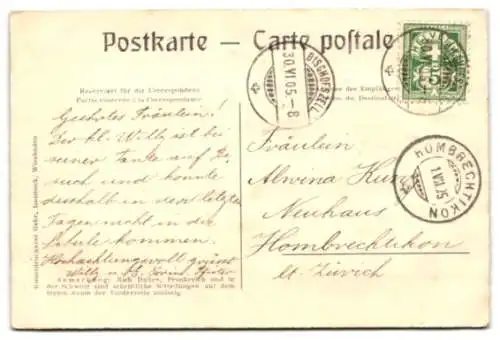 Postkarte — Carte postale
Reserviert für die Correspondenz
Partie réservée à la Correspondance
des Empfängers
du Destinataire
BISCHOFSZELL
30.VI.05.-8
HELVETIA
5
HOMBRECHTIKON
1.VII.05
Geehrtes Fräulein!
Der kl. Willy ist bei
seiner Tante auf Be-
such und konnte
deshalb in den letzten
Tagen nicht in die
Schule kommen.
Hochachtungsvoll grüsst
Fräulein
Alwina
Neuhaus
Hombrechtikon
Ct. Zürich
Anmerkung: Nach Italien, Frankreich und in
der Schweiz sind schriftliche Mitteilungen auf dem
leeren Raum der Vorderseite zulässig.